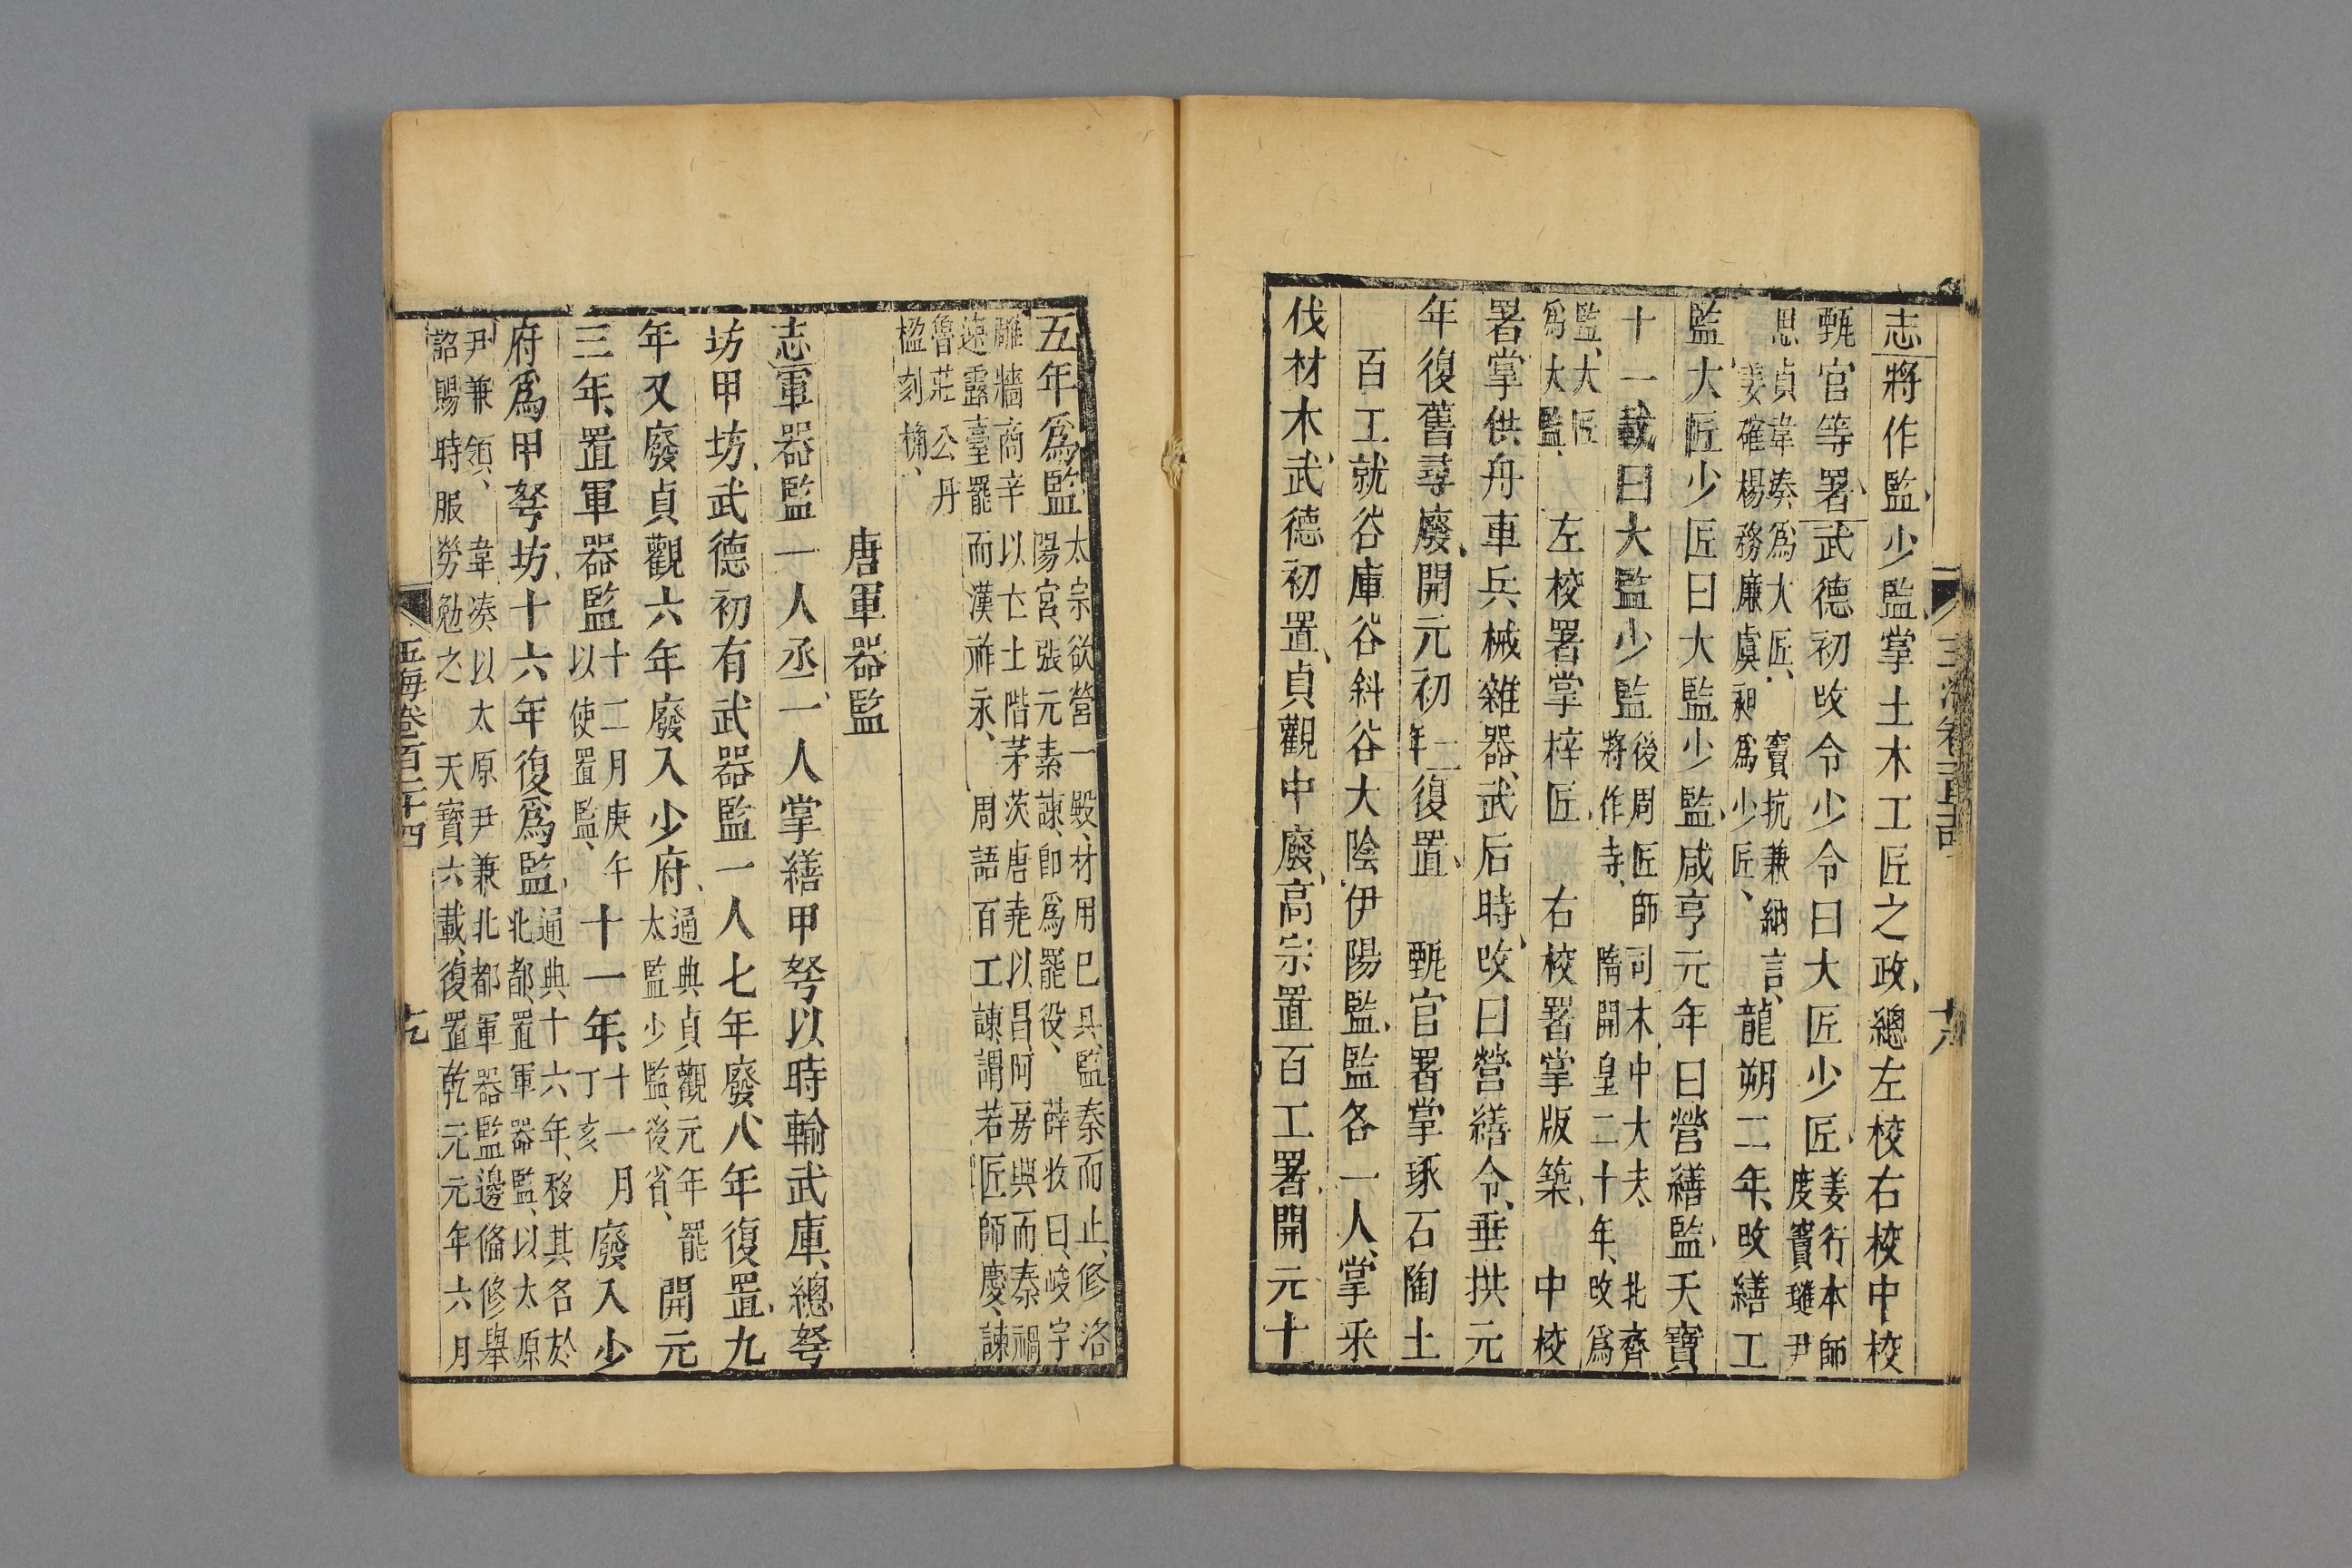 志將作監少監掌土木工匠之政總左校右校中校
甄官等署武德初改令少令曰大匠少匠姜行本師
度竇璡尹
思貞韋湊爲大匠竇抗兼納言
姜確楊務廉虞昶爲少匠龍朔二年改繕工
監大匠少匠曰大監少監咸亨元年曰營繕監天寶
十一載曰大監少監後周匠師司木中大夫北齊
將作寺隋開皇二十年改爲
監大匠
爲大監左校署掌梓匠右校署掌版築中校
署掌供舟車兵械雜器武后時改曰營繕令垂拱元
年復舊尋廢開元初二年復置甄官署掌琢石陶土
百工就谷庫谷斜谷大陰伊陽監監各一人掌采
伐材木武德初置貞觀中廢高宗置百工署開元十
五年爲監太宗欲營一殿材用已具監秦而止修洛
陽宮張元素諫即爲罷役薛收曰峻宇
雕牆商辛以亡土階茅茨唐堯以昌阿房興而秦禍
速露臺罷而漢祚永周語百工諫謂若匠師慶諫
魯莊公丹
楹刻桷
唐軍器監
志軍器監一人丞一人掌繕甲弩以時輸武庫總弩
坊甲坊武德初有武器監一人七年廢八年復置九
年又廢貞觀六年廢入少府通典貞觀元年罷
太監少監後省開元
三年置軍器監十二月庚午
以使置監十一年十一月
丁亥廢入少
府爲甲弩坊十六年復爲監通典十六年移其名於
北都置軍器監以太原
尹兼領韋湊以太原尹兼北都軍器監邊備修舉
詔賜時服勞勉之天寶六載復置乾元元年六月
玉海卷百二十四
十九
十八